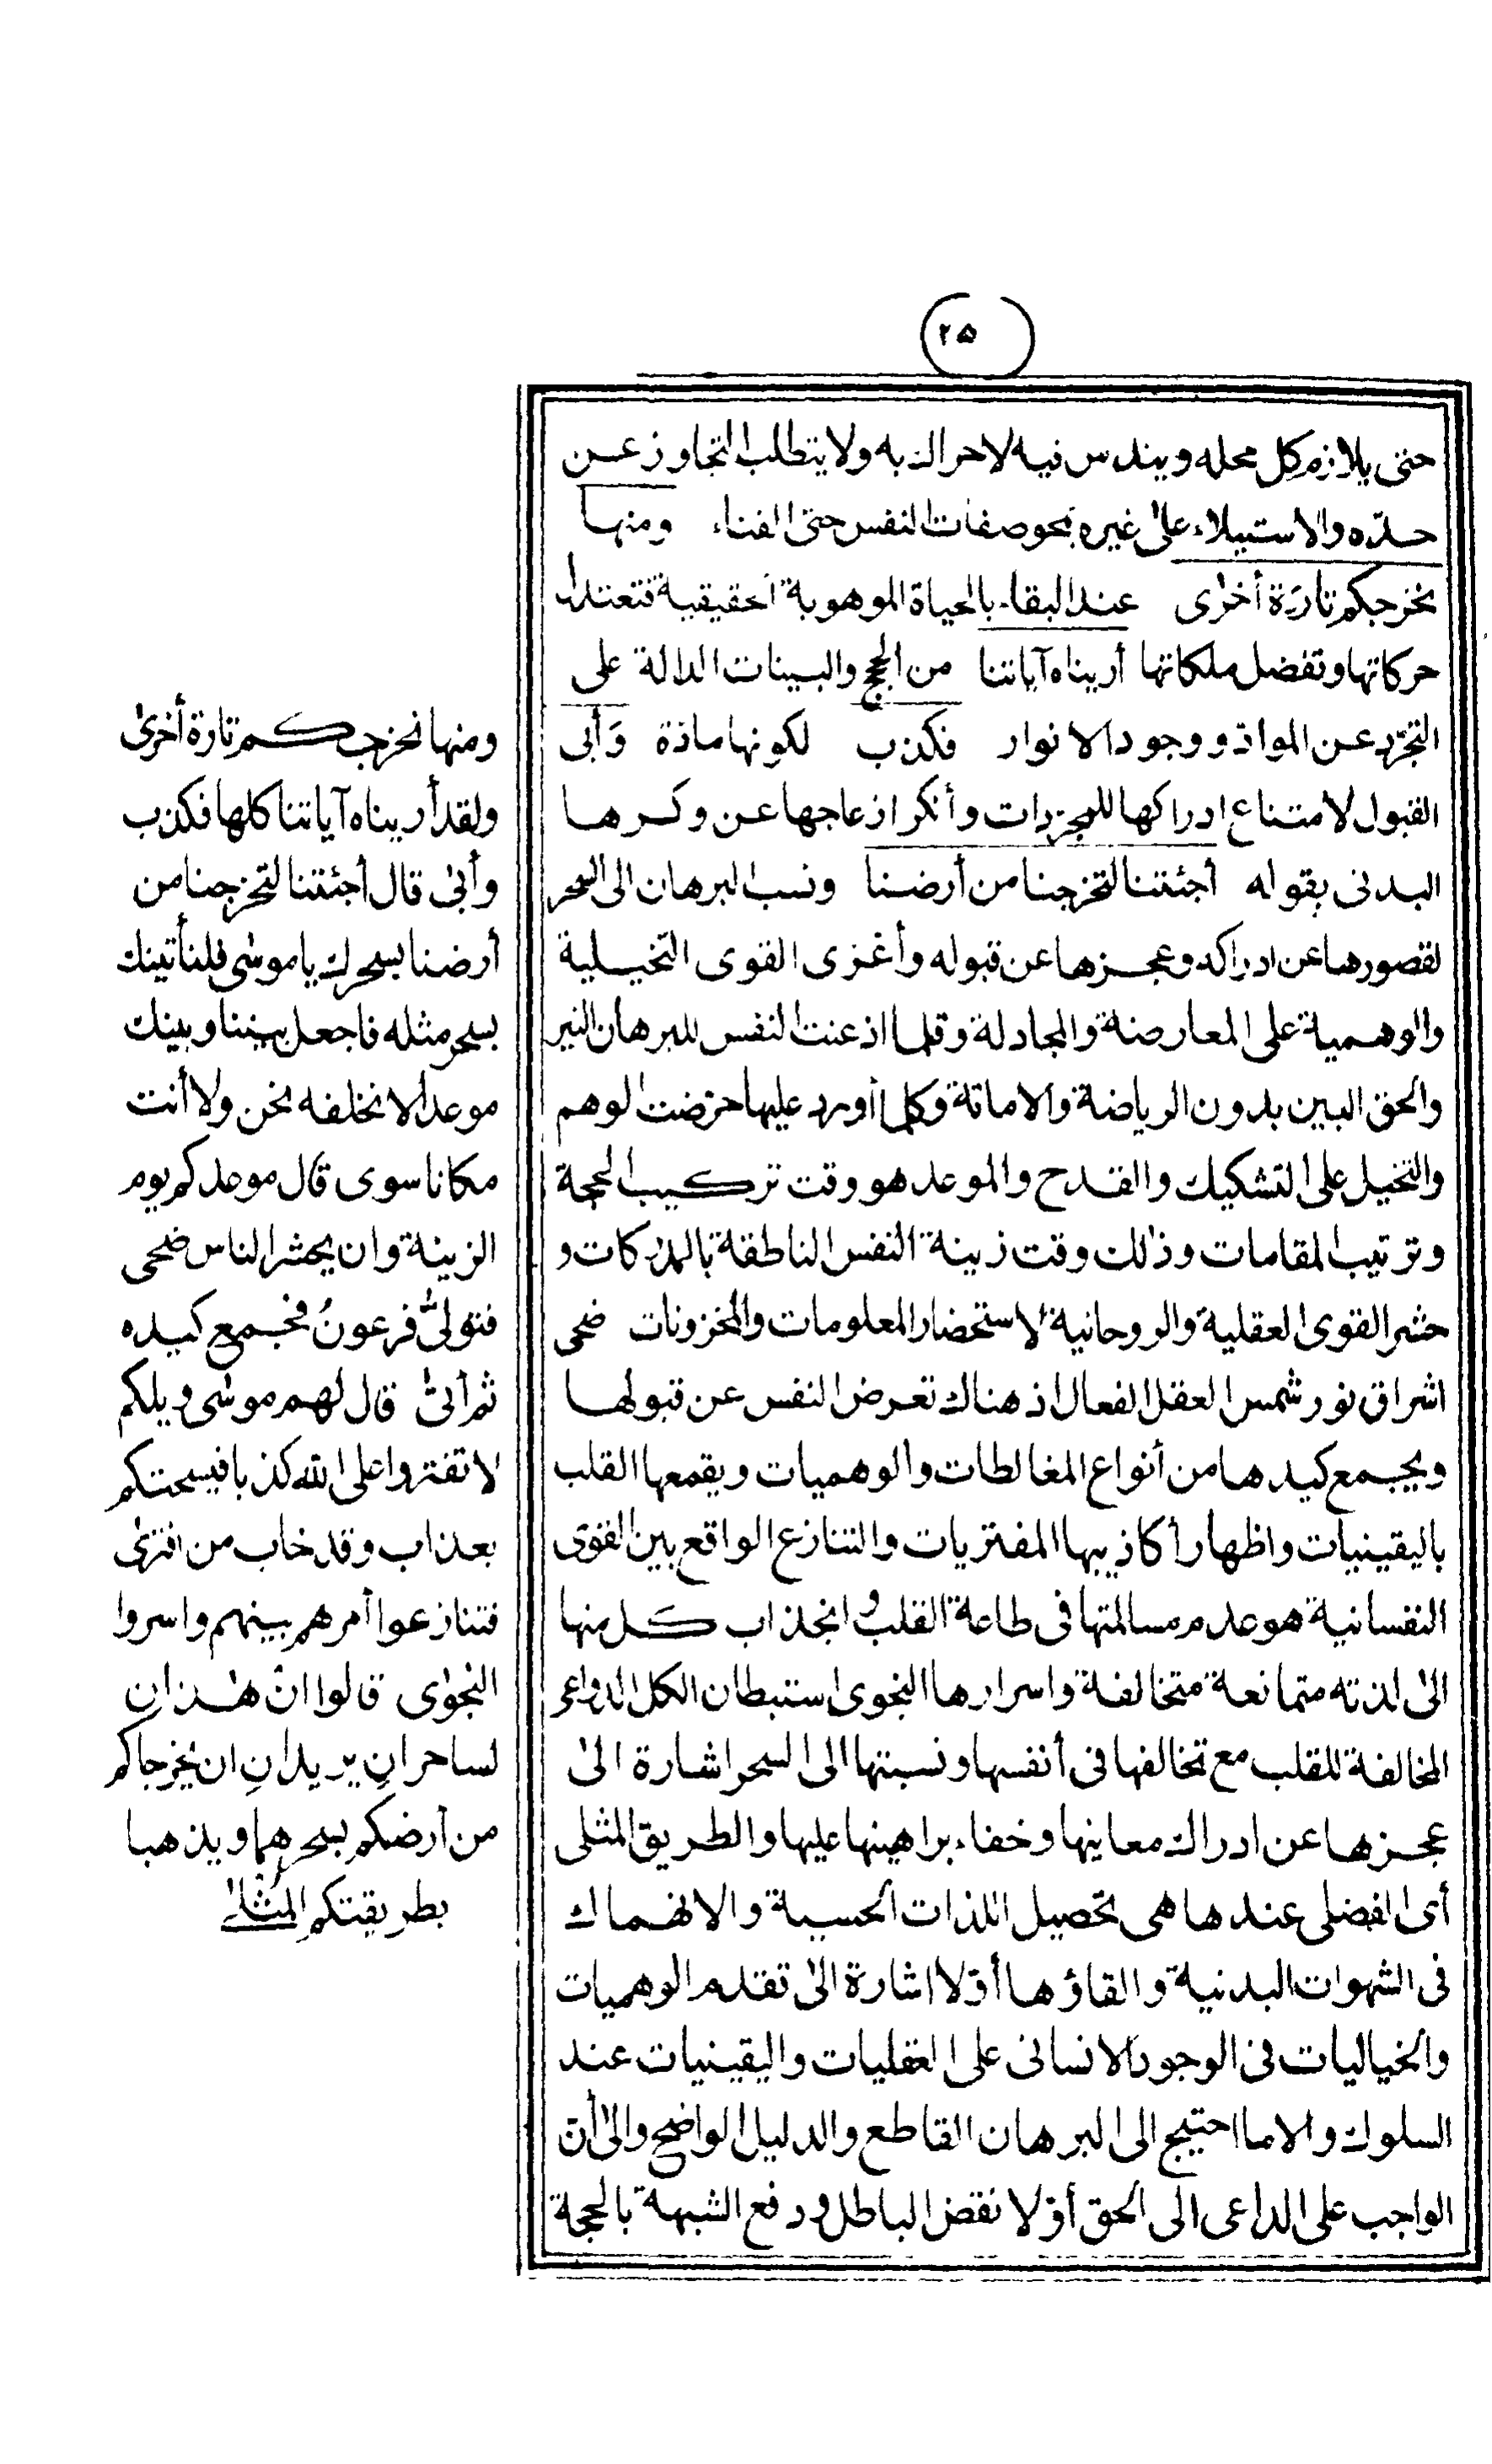 ٢٥
حتى يلازم كل محله ويندس فيه لاحراك به ولا يتطلب التجاوز عن
حده والاستيلاء على غيره نحو صفات النفس حتى الفناء ومنها
نخرجكم تارة أخرى عند البقاء بالحياة الموهوبة الحقيقية فتعتدل
حركاتها وتفضل ملكاتها أريناه آياتنا من الحجج والبينات الدالة على
التجرّد عن الموادّ ووجود الانوار فكذب لكونها مادّة وأبى
القبول لامتناع ادراكها للمجرّدات وأنكر ازعاجها عن وكرها
البدنى بقوله أجئتنا لتخرجنا من أرضنا ونسب البرهان الى السحر
لقصورها عن ادراكه وعجزها عن قبوله وأغرى القوى التخيلية
والوهمية على المعارضة والمجادلة وقلما اذعنت النفس للبرهان النير
والحق البين بدون الرياضة والاماتة وكلما أورد عليها حرّضت الوهم
والتخيل على التشكيك والقدح والموعد هو وقت تركيب الحجة
وترتيب المقامات وذلك وقت زينة النفس الناطقة بالمدركات و
حشر القوى العقلية والروحانية لاستحضار المعلومات والمخزونات ضحى
اشراق نور شمس العقل الفعال اذ هناك تعرض النفس عن قبولها
ويجمع كيدها من أنواع المغالطات والوهميات ويقمعها القلب
باليقينيات واظهار أكاذيبها المفتريات والتنازع الواقع بين القوى
النفسانية هو عدم مسالمتها فى طاعة القلب وانجذاب كل منها
الى لذته متمانعة متخالفة واسرارها النجوى استبطان الكل الدواعى
المخالفة للقلب مع تخالفها فى أنفسها ونسبتها الى السحر اشارة الى
عجزها عن ادراك معانيها وخفاء براهينها عليها والطريق المثلى
أى الفضلى عندها هى تحصيل اللذات الحسية والانهماك
فى الشهوات البدنية والقاؤها أوّلا اشارة الى تقدم الوهميات
والخياليات فى الوجود الانسانى على العقليات واليقينيات عند
السلوك والا ما احتيج الى البرهان القاطع والدليل الواضح والى أن
الواجب على الداعى الى الحق أوّلا نقض الباطل ودفع الشبهة بالحجة
ومنها نخرجكم تارة أخرى
ولقد أريناه آياتنا كلها فكذب
وأبى قال أجئتنا لتخرجنا من
أرضنا بسحرك يا موسى فلنأتينك
بسحر مثله فاجعل بيننا وبينك
موعدا لا نخلفه نحن ولا أنت
مكانا سوى قال موعدكم يوم
الزينة وان يحشر الناس ضحى
فتولى فرعون فجمع كيده
ثم أتى قال لهم موسى ويلكم
لا تفتروا على الله كذبا فيسحتكم
بعذاب وقد خاب من افترى
فتنازعوا أمرهم بينهم واسروا
النجوى قالوا ان هذان
لساحران يريدان ان يخرجاكم
من أرضكم بسحرهما ويذهبا
بطريقتكم المثلى